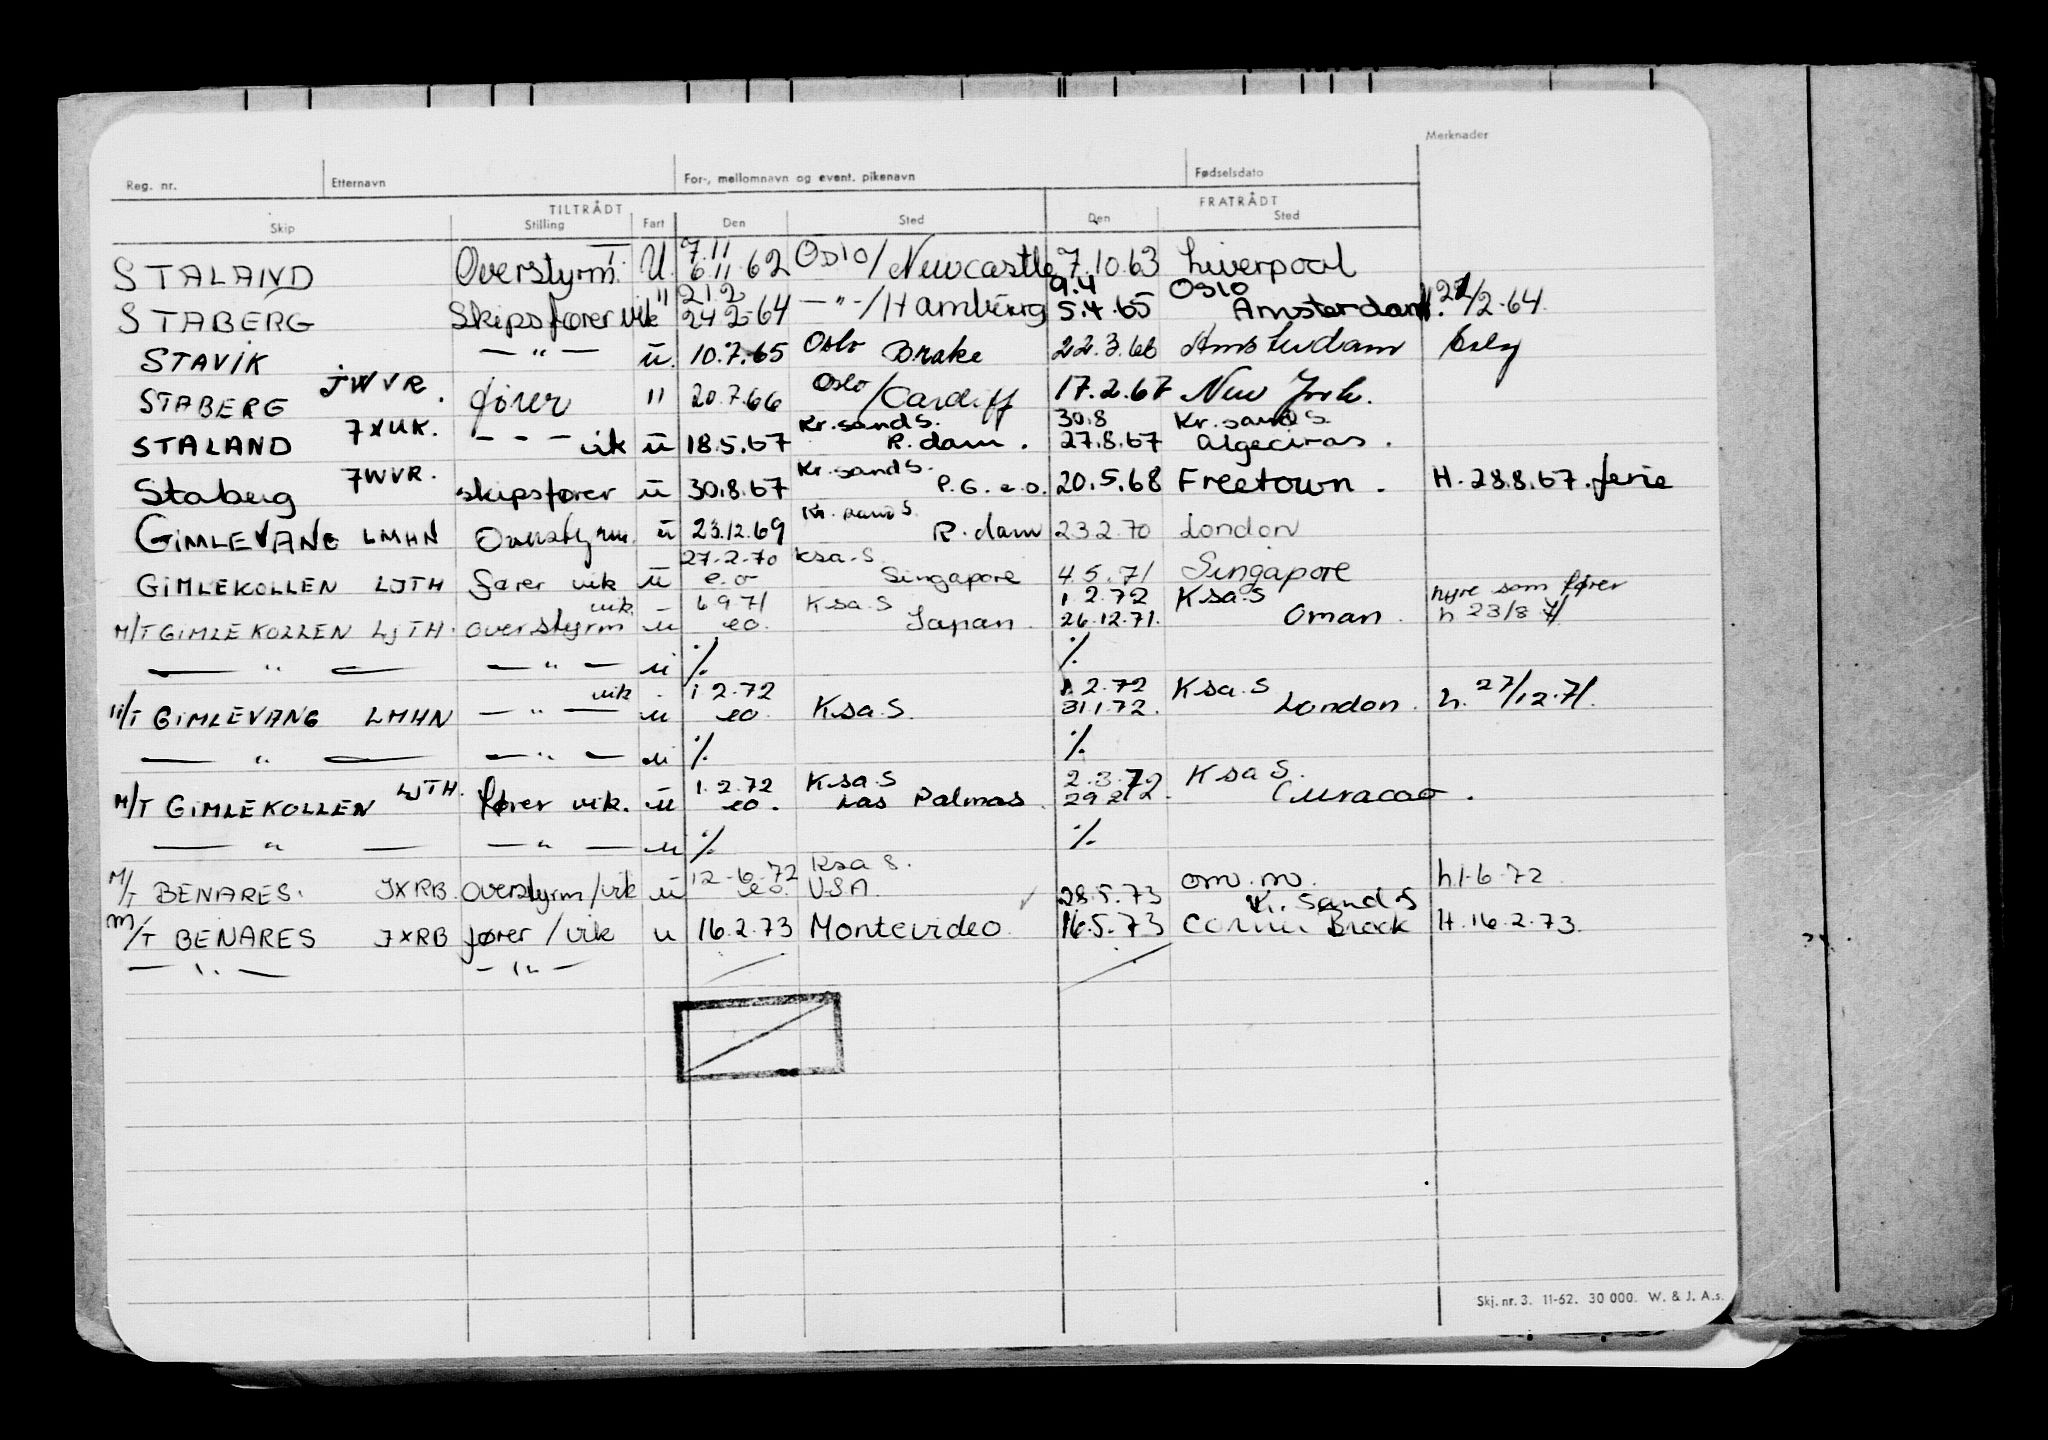 Merknader
Reg. nr. Etternavn For-, mellomnavn og event. pikenavn Fødselsdato
TILTRÅDT FRATRÅDT
Skip Stilling Fart Den Sted Den Sted
7.11
STALAND Overstyrm. U. 6.11.62 Oslo/Newcastle 7.10.63 Liverpool
21.2 9.4 Oslo
STABERG Skipsfører vik " 24.2.64 — " —/Hamburg 5.4.65 Amsterdam H. 22/2-64.
STAVIK — " — u. 10.7.65 Oslo Brake 22.3.66 Amsterdam
STABERG JWVR. fører " 20.7.66 Oslo/Cardiff 17.2.67 New York.
Kr.sand S. 30.8 Kr.sand S.
STALAND JXUK. — — — vik u 18.5.67 R.dam. 27.8.67 Algeciras.
Kr.sand S.
Staberg JWVR. skipsfører u 30.8.67 P.G. e.o. 20.5.68 Freetown. H. 28.8.67. ferie
Kr.sand S.
GIMLEVANG LMHN Overstyrm. u 23.12.69 R.dam 23.2.70 London
27-2-70 Ksa.S
GIMLEKOLLEN LJTH fører vik u e.o Singapore 4.5.71 Singapore
vik 6.9.71 Ksa.S 1.2.72 Ksa.S hyre som fører
M/T GIMLEKOLLEN LJTH. overstyrm u eo. Japan. 26.12.71. Oman. h 23/8 71
— " — — " — u ·/. ·/.
vik 1.2.72 1.2.72 Ksa.S
M/T GIMLEVANG LMHN — " — u eo. Ksa.S. 31.1.72. London. h. 27/12.71.
— " — — " — u ·/. ·/.
1.2.72 Ksa.S 2.3.72 Ksa S.
M/T GIMLEKOLLEN LJTH. fører vik. u eo. Las Palmas. 29.2.72. Curacao.
— " — — " — u ·/. ·/.
12-6-72 Ksa S. om.m.
M/T BENARES. JXRB. Overstyrm/vik u eo. USA. 28.5.73 K.Sand S h.1-6-72
M/T BENARES JXRB fører/vik u 16.2.73 Montevideo. 16.5.73 H. 16.2.73.
— " — — " —
Skj. nr. 3. 11-62. 30 000. W. & J. A.s.